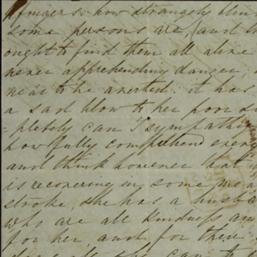 how strangely blind
some persons are, and
ought to find them all alive
never apprehending danger,
near to be averted: it has
a sad blow to her poor
=pletely can I sympathi
how fully comprehend every
and think however that
is recovering in some me
stroke, she has a husba
who are all kindness an
for her, and for their